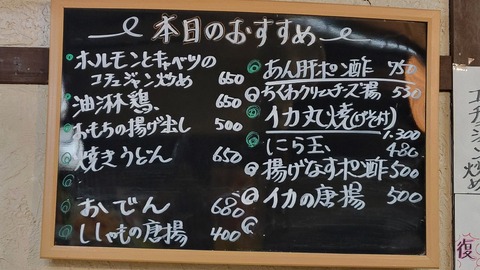 本日のおすすめ
ホルモンとキャベツの
コチュジャン炒め 650
油淋鶏 650
おもちの揚げ出し 500
焼きうどん 650
おでん 680
ししゃもの唐揚 400
あん肝ポン酢 750
ちくわクリームチーズ揚 530
イカ丸焼(げそ付) 1.300
にら玉 480
揚げなすポン酢 500
イカの唐揚 500
コチュジャン炒め
復